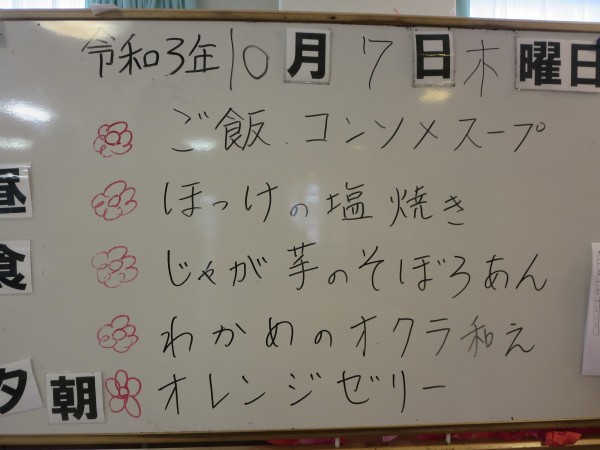 令和3年10月7日木曜日
ご飯.コンソメスープ
ほっけの塩焼き
じゃが芋のそぼろあん
わかめのオクラ和え
オレンジゼリー
昼
食
夕
朝